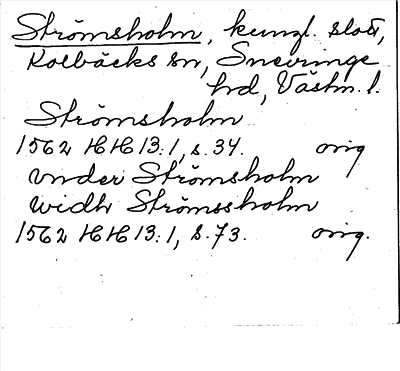 Strömsholm, kungl. slott,
Kolbäcks sn, Snevringe
hd, Västm. l.
Strömsholm
1562 HH 13:1, s. 34. orig
vnder Strömsholm
widh Strömssholm
1562 HH 13:1, s. 73. orig.